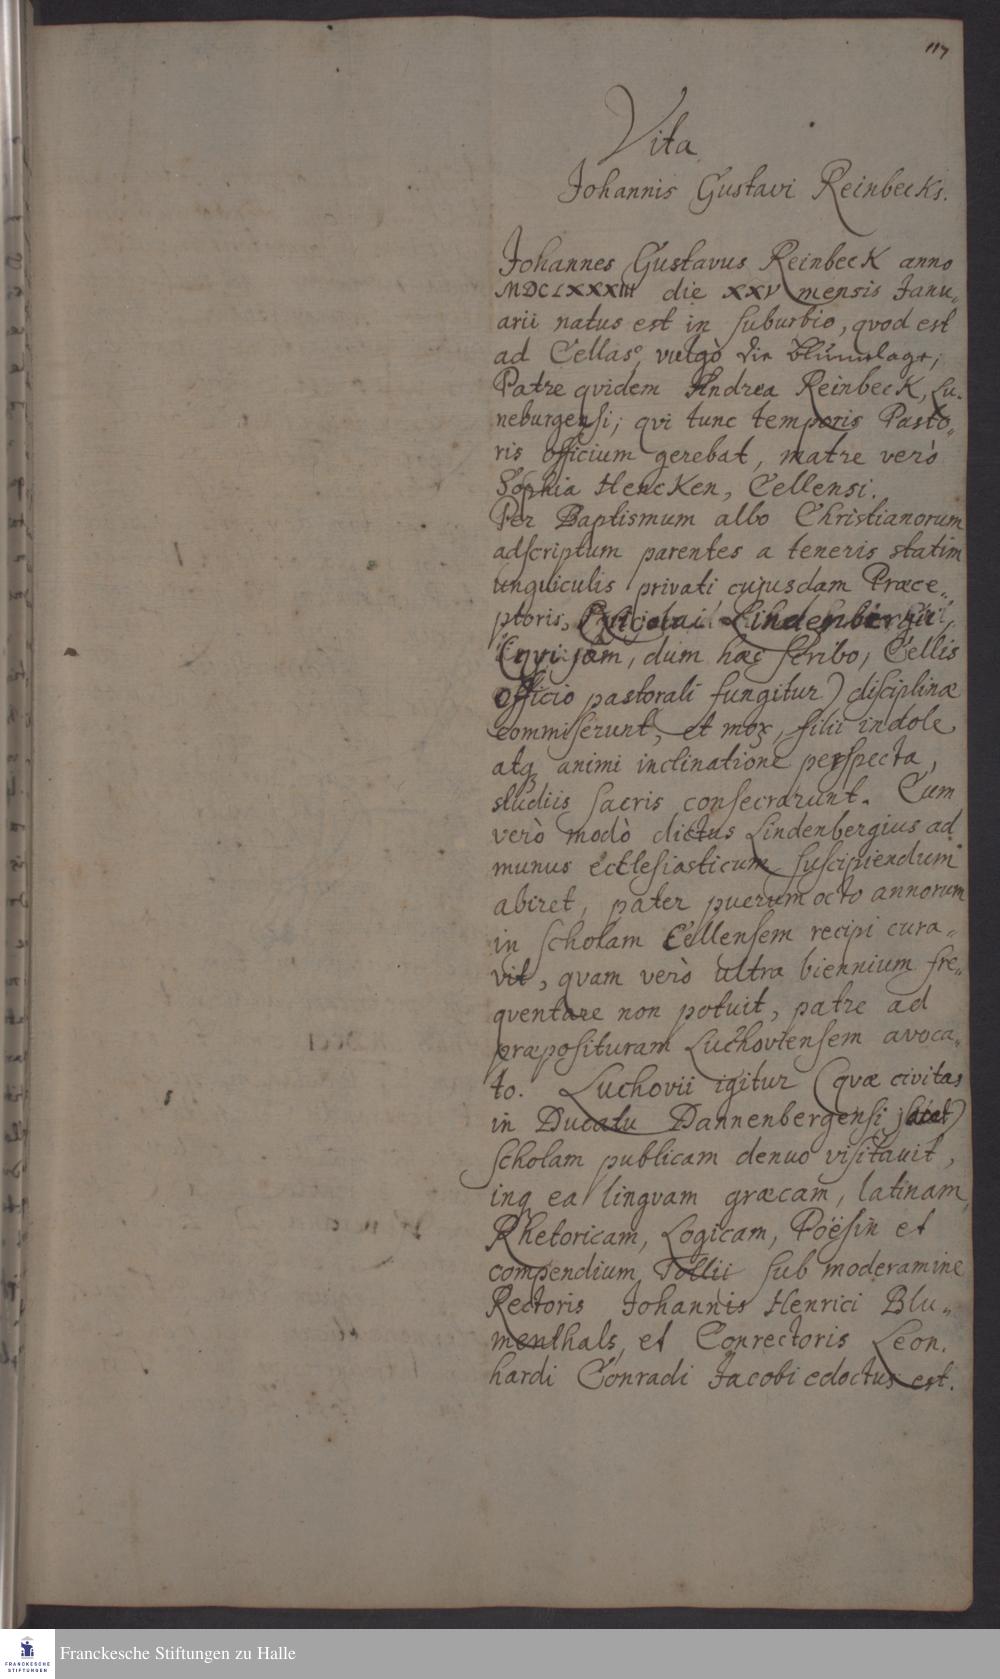 117
Vita
Johannis Gustavi Reinbecks.
Johannes Gustavus Reinbeck anno
MDCLXXXIII die XXV mensis Janu„
arii natus est in suburbio, qvod est
ad Cellas, vulgò die Blumlage,
Patre qvidem Andrea Reinbeck, Lu„
neburgensi; qvi tunc temporis Pasto„
ris officium gerebat, matre verò
Sophia Hencken, Cellensi.
Per Baptismum albo Christianorum
adscriptum parentes a teneris statim
unguiculis privati cujusdam Præce„
ptoris, Lindenbergii,
(qvi jam, dum hæc scribo, Cellis
officio pastorali fungitur) disciplinæ
commiserunt, et mox, filii indole
atq animi inclinatione perspecta,
studiis sacris consecrarunt. Cum
verò modò dictus Lindenbergius ad
munus ecclesiasticum suscipiendum
abiret, pater puerum octo annorum
in scholam Cellensem recipi cura„
vit, qvam verò ultra biennium fre„
qventare non potuit, patre ad
præposituram Luchoviensem avoca„
to. Luchovii igitur (qvæ civitas
in Ducatu Dannenbergensi jacet)
scholam publicam denuo visitavit,
inq ea lingvam græcam, latinam,
Rhetoricam, Logicam, Poësin et
compendium Tollii sub moderamine
Rectoris Johannis Henrici Blu„
menthals, et Conrectoris Leon„
hardi Conradi Jacobi edoctus est.
FRANCKESCHE
STIFTUNGEN
Franckesche Stiftungen zu Halle